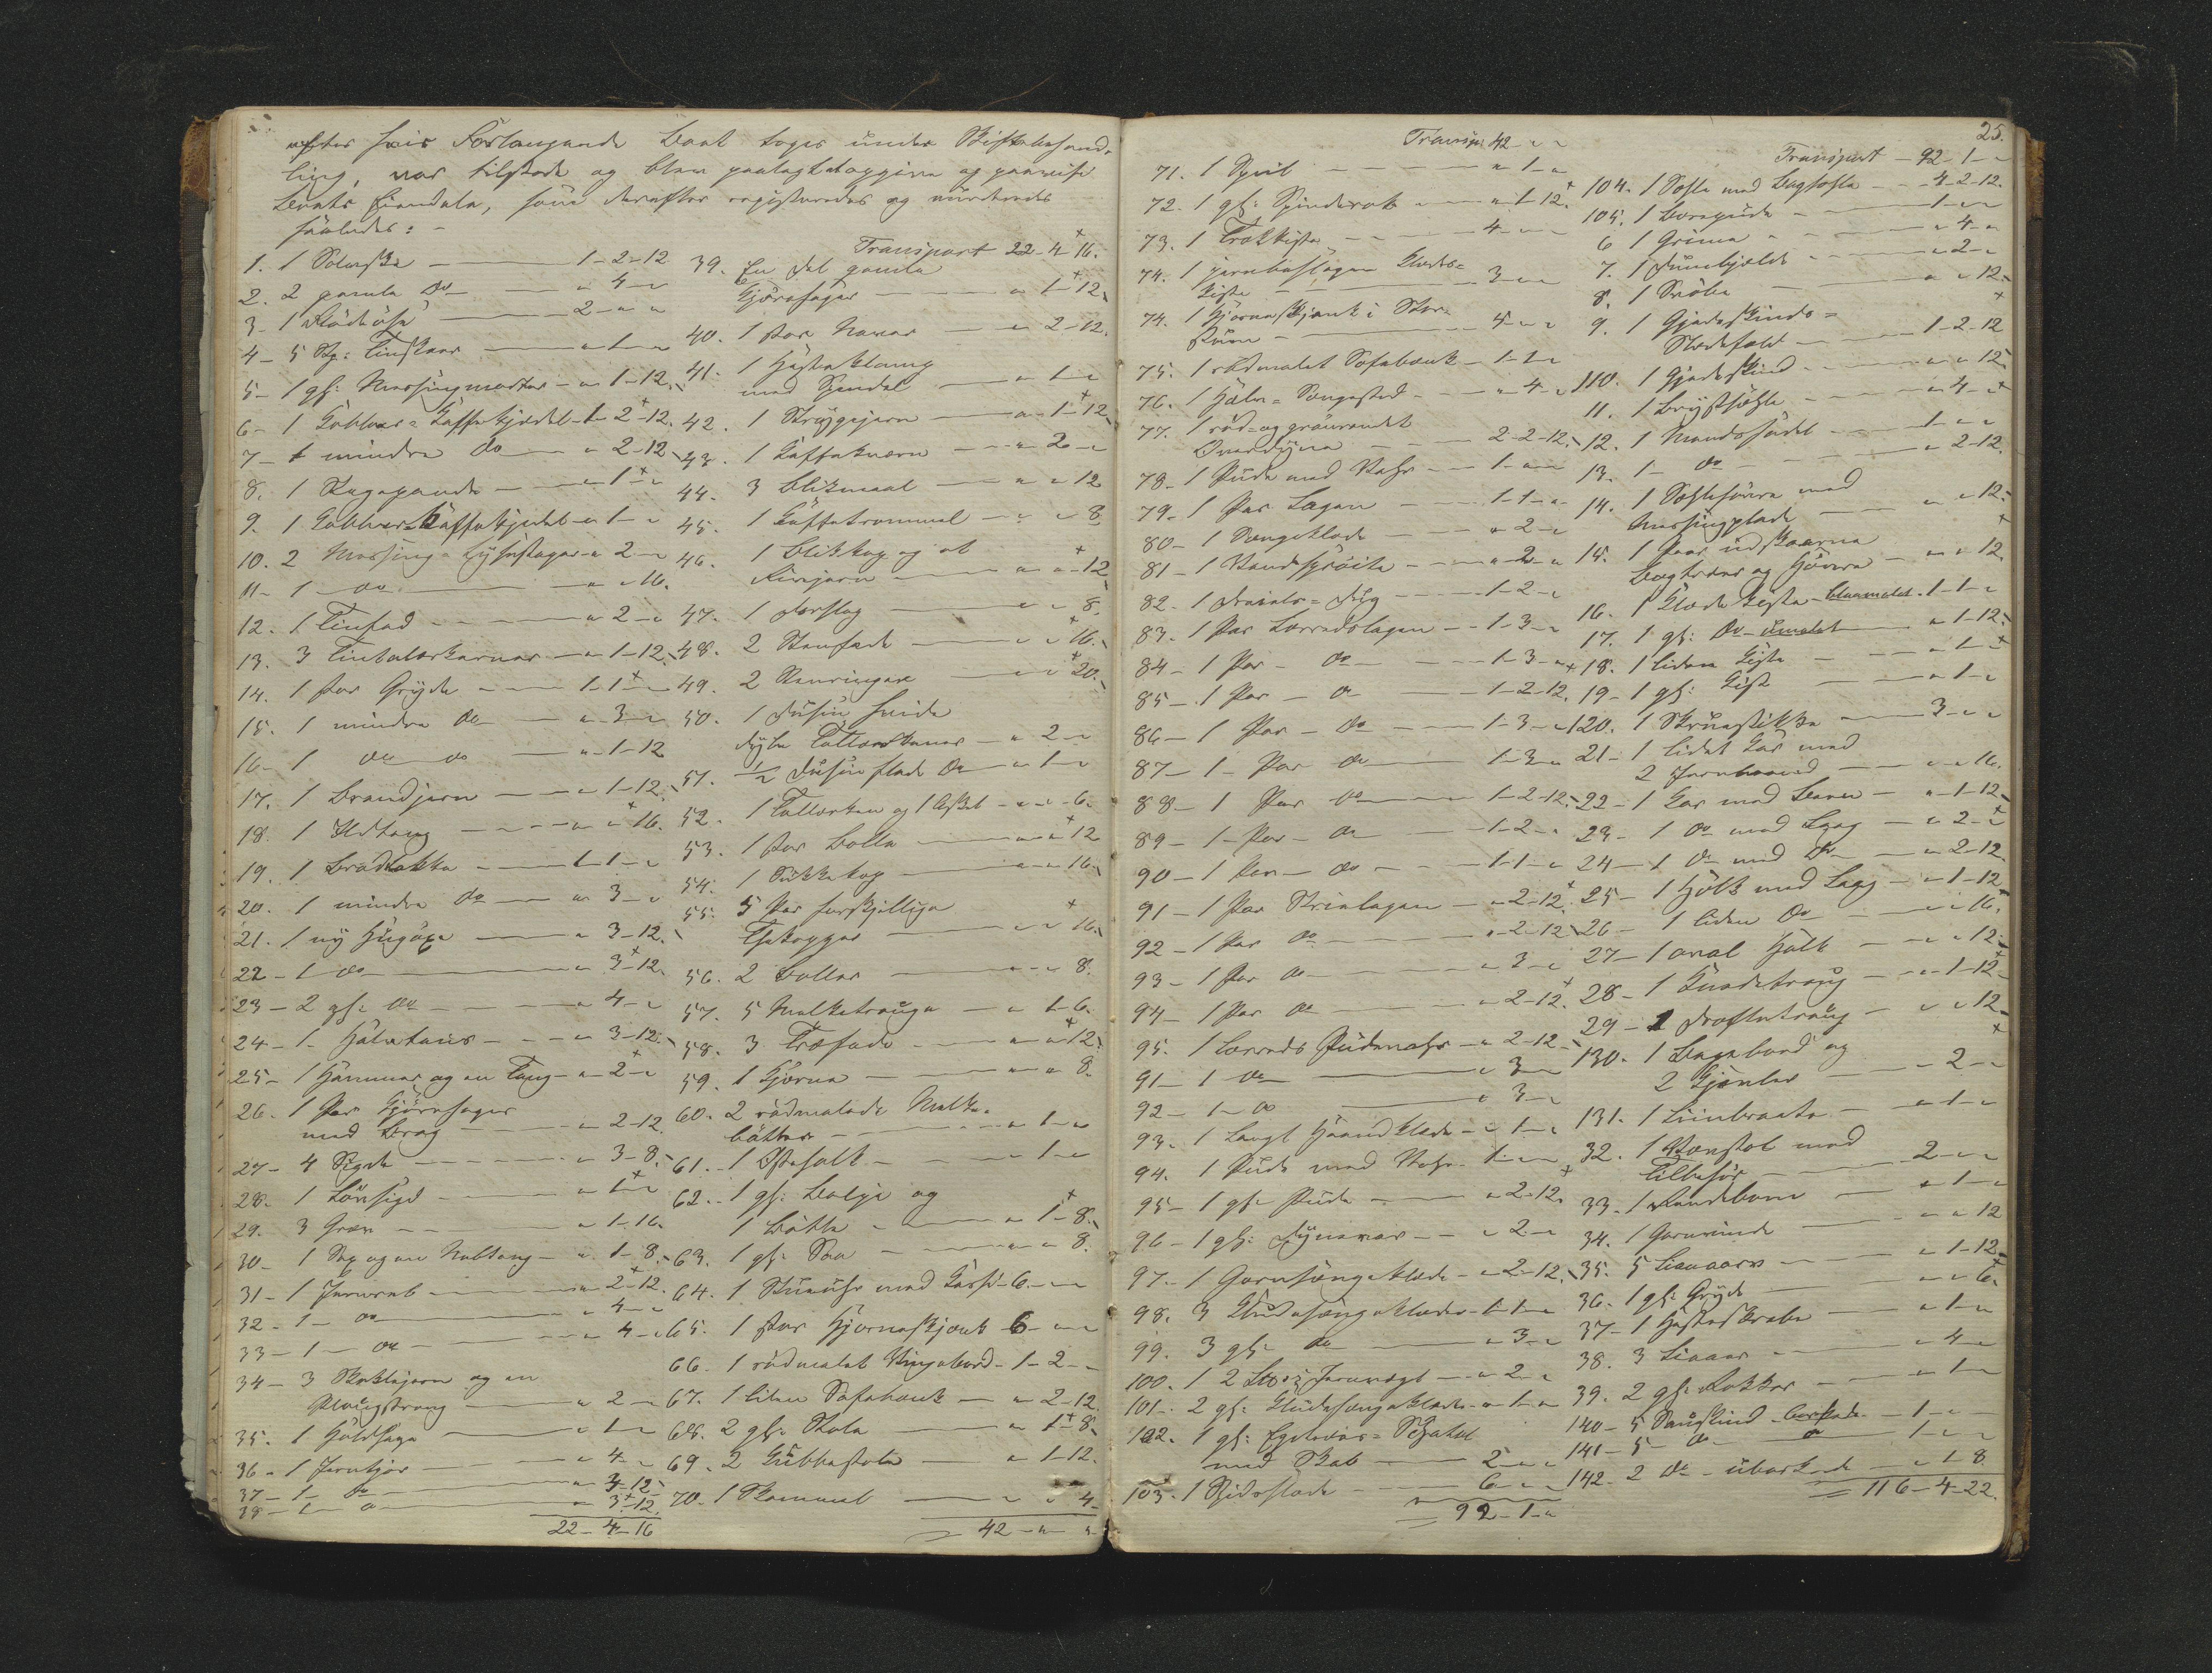 efter hvis Forlangende Boet toges under Skiftebehand-
ling, var tilstede og blev paalagt at opgive og paavise
Boets Eiendele, som derefter registreredes og vurderedes
saaledes: -
1. 1 Sølvske — 1-2-12
2. 2 gamle Do — " 4 - "
3 - 1 — 2 - " "
4 - 5 Stp: Tinskeer — " 1 - "
5 - 1 gl: Messingmorter - " 1-12.
6 - 1 Kobber=Kaffekjedel - 1-2-12.
7 - 1 mindre do — " 2-12
8. 1 Stegepande — " 1 - "
9. 1 Kobber=Kaffekjedel - " 1 - "
10. 2 Messing-Lysestager - " 2 - "
11 - 1 - do — " " 16.
12. 1 Tinfad - — " 2 - "
13. 3 Tintalerkener — " 1-12.
14. 1 stor Gryde — 1-1 - "
15. 1 mindre Do — " 3 - "
16 - 1 do do — " 1-12
17. 1 Brandjern — " 1-12.
18. 1 Ildtang — " " 16.
19. 1 Brødtakke — 1-1 - "
20. 1 mindre Do — " 3 - "
21. 1 ny Hugøxe — " 3-12.
22 - 1 do — " 3-12.
23 - 2 gl: do — " 4 - "
24 - 1 — " 3-12.
25 - 1 Hammer og en Tang - " 2 - "
26. 1 Par
med Drag — " 2-12
27 - 4 Sigde — " 3-8.
28. 1 Løvsigd — " 1 - "
29. 3 Græv — " 1-16.
30 - 1 og en Nebtang - " 1-8.
31 - 1 — " 2-12.
32 - 1 - do — " 4 - "
33 - 1 - do — " 4 - "
34 - 3 og en
— " 2 - "
35. 1 — " 1 - "
36 - 1 — " 4 - "
37 - 1 - do — " 3-12
38 - 1 - do — " 3-12
22-4-16
Transport 22-4-16.
39. En Del gamle
— " 1-12.
40. 1 stor Naver — " 2-12.
41. 1
med — " 1 - "
42. 1 Strygejern — " 1-12
43. 1 Kaffekværn — " 2 - "
44. 3 Blikmaal — " " 12
45. 1 Kaffetrommel — " " 8.
46. 1 Blikkop og et
— " " 12
47. 1 Dørslag — " " 8.
48. 2 Stenfade — " " 16.
49. 2 — " " 20.
50. 1 Dusin hvide
dybe Tallerkener — " 2 - "
51. ½ Dusin flade Do — " 1 - "
52. 1 Tallerken og 1 Asket — " " 6.
53. 1 stor Bolle — " " 12
54. 1 Sukkekop — " " 16.
55. 5 Par forskjellige
Thekopper — " " 16.
56. 2 Boller — " " 8.
57. 5 Melketrouge — " 1-6.
58. 3 Træfade — " " 12.
59. 1 Kjerne — " " 8.
60. 2 rødmalede Melke-
bøtter — " 1 - "
61. 1 — " 1 - "
62. 1 gl: Balje og
1 Bøtte — " 1-8.
63. 1 gl: Saa — " " 8.
64. 1 Stueuhr med Kasse - 6 - " "
65. 1 stor Hjørneskjænk 6 - " "
66. 1 rødmalet Vingebord - 1-2 - "
67. 1 liten Sofabænk — " 2-12
68. 2 gl: Stole — " 1-8.
69. 2 Kubbestole — " 1-12.
70. 1 Skammel — " " 4.
42 - " "
Transp: 42 - " "
71. 1 Speil — " 1 - "
72. 1 gl: Spinderok — " 1-12.
73. 1 — 4 - " "
74. 1 jernbeslagen Klædes=
kiste — 3 - " "
74. 1 Hjørneskjænk i Stor-
stuen — 4 - " "
75. 1 rødmalet Sofabænk - 1-1 - "
76. 1 Sengested — " 4 - "
77. 1 rød= og graarandet
Overdyne — 2-2-12.
78 - 1 Pude med Vahr — 1 - " "
79 - 1 Par Lagen — 1-1 - "
80 - 1 Sengeklæde — " 2 - "
81 - 1 Vandsprøite — " 2 - "
82 - 1 Dreiels=Dug — 1-2 - "
83. 1 Par Lærredslagen — 1-3 - "
84 - 1 Par - do — 1-3 - "
85 - 1 Par - do — 1-2-12.
86 - 1 Par - do — 1-3 - "
87 - 1 - Par do — 1-3 - "
88 - 1 Par do — 1-2-12.
89 - 1 - Par - do — 1-2 - "
90 - 1 Par - do — 1-1 - "
91 - 1 Par Strielagen — " 2-12.
92 - 1 Par do — " 2-12
93 - 1 Par do — " 3 - "
94 - 1 Par do — " 2-12.
95. 1 Lærreds Pudevahr - " 2-12.
91 - 1 do — " 3 - "
92 - 1 - do — " 3 - "
93. 1 langt Haandklæde - " 1 - "
94. 1 Pude med Vahr 1 - " "
95 - 1 gl: Pude — " 2-12.
96 - 1 gl: Dynevar — " 2 - "
97 - 1 Garnsengeklæde - " 2-12.
98. 3 Kludesengeklæder - 1-1 - "
99. 3 gl: do — " 3 - "
100. 1 2 Lbs Jernvægt — " 2 - "
101. 2 gl: Kludesengeklæder - " 1 - "
102. 1 gl: Schatol
med Skab — 2 - " "
103. 1 Spidsslæde — 6 - " "
92-1 - "
25.
Transport - 92-1 - "
104. 1 Sæle med Bagsæle — 4-2-12.
105. 1 Bærepude — 1 - " "
6 1 Grime — " 4 - "
7. 1 Dumbjelde — " 2 - "
8. 1 Svøbe — " " 12.
9. 1 Gjedeskinds=
Slædefæld — 1-2-12
110. 1 Gjedeskind — " " 12.
11. 1 Brystsæle — " 4 - "
12. 1 Mandssadel — 1 - " "
13. 1 - do — " 2-12.
14. 1 med
Messingplade — " " 12.
15. 1 Paar udskaarne
Bogtræer og — " " 12.
16. 1 Klædekiste - blaamalet - 1-1 - "
17. 1 gl: Do - umalet — " 1-12.
18. 1 liden Kiste — " 1 - "
19 - 1 gl: Kiste — " 1 - "
120. 1 Skruestikke — 3 - " "
21 - 1 lidet Kar med
2 Jernbaand — " " 16.
22 - 1 Kar med — " 1-12.
23 - 1 do med Laag — " 2 - "
24 - 1 Do med Do — " 2-12.
25 - 1 Holk med Laag — " 1-12.
26 - 1 liden Do — " " 16.
27 - 1 oval Holk — " " 12.
28 - 1 — " 1-12.
29 - 1 — " " 12.
130. 1 Bagebord og
2 Kjevler — " 2 - "
131. 1 Liinbraate — " 1 - "
32. 1 Vævstol med
Tilbehør — 2 - " "
33. 1 Rendebom — " 1 - "
34. 1 Garnvinde — " " 12
35. 5 — " 1-12.
36. 1 gl: Gryde — " " 6.
37 - 1 Hesteskrabe — " 1 - "
38. 3 Liaaer — " 4 - "
39. 2 gl: Rokker — " 1 - "
140 - 5 Saueskind - barkede - 1 - " "
141 - 5 - do — do 1 - " "
142. 2 do - ubarkede — " 1-8
116-4-22.